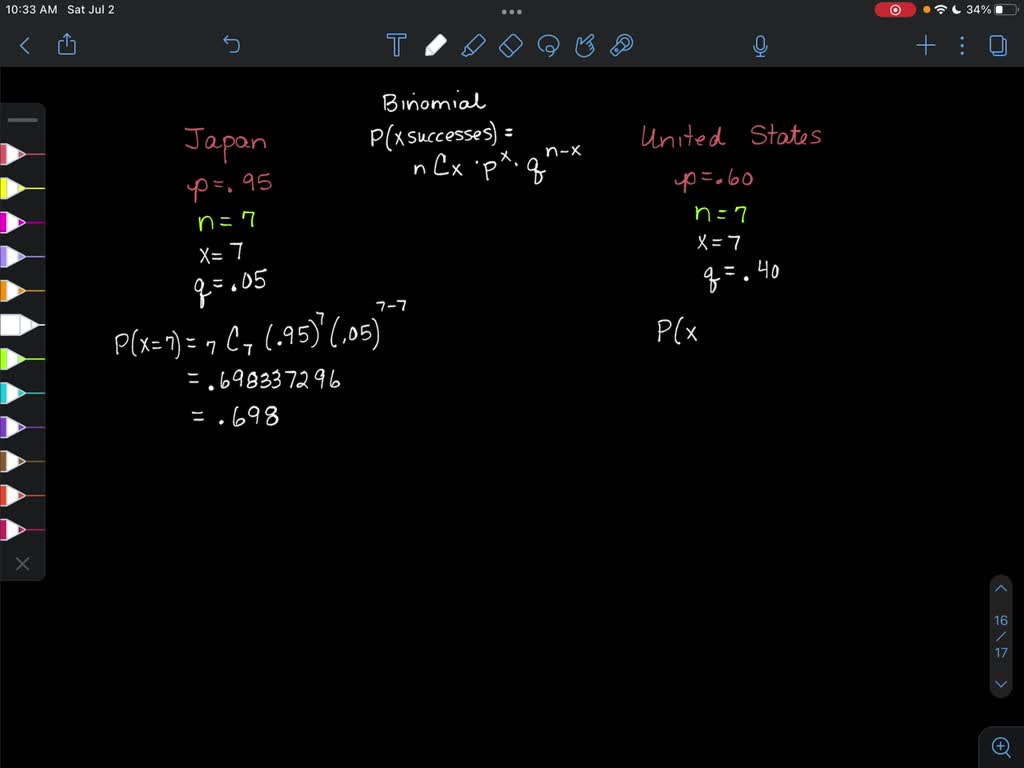 10:33 AM Sat Jul 2
34%
T
Binomial
P(x successes) =
n C x · p^x · q^n-x
Japan
p = .95
n = 7
x = 7
q = .05
P(x=7) = 7 C 7 (.95)^7 (.05)^7-7
= .698337296
= .698
United States
p = .60
n = 7
x = 7
q = .40
P(x
16
/
17